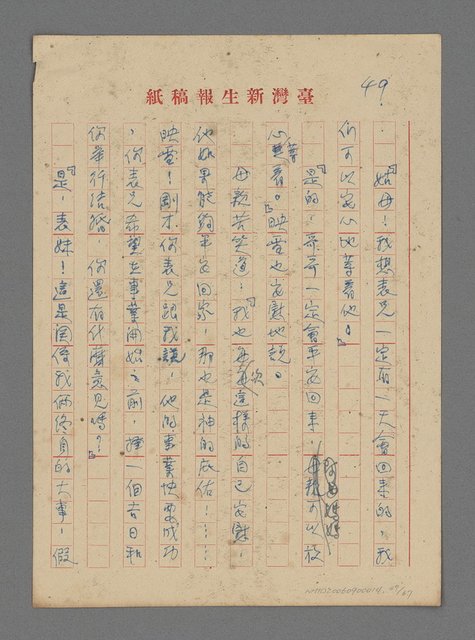 49
臺灣新生報稿紙
「姑母！我想表兄一定有一天會回來的，我
們可以安心地等着他。」
「是的！哥哥一定會平安回來！母親可以放
心等着。」映雪也安慰地說。
母親苦笑道：「我也每次這樣的自己安慰！
他如果能夠平安回家，那也是神的庇佑！……
映雪！剛才你表兄跟我談，他的事業快要成功
，你表兄希望在事業開始之前，擇一個吉日和
你舉行結婚，你還有什麼意見嗎？」
「是，表妹！這是關係我倆終身的大事！假
NMTL20060900014 49/67